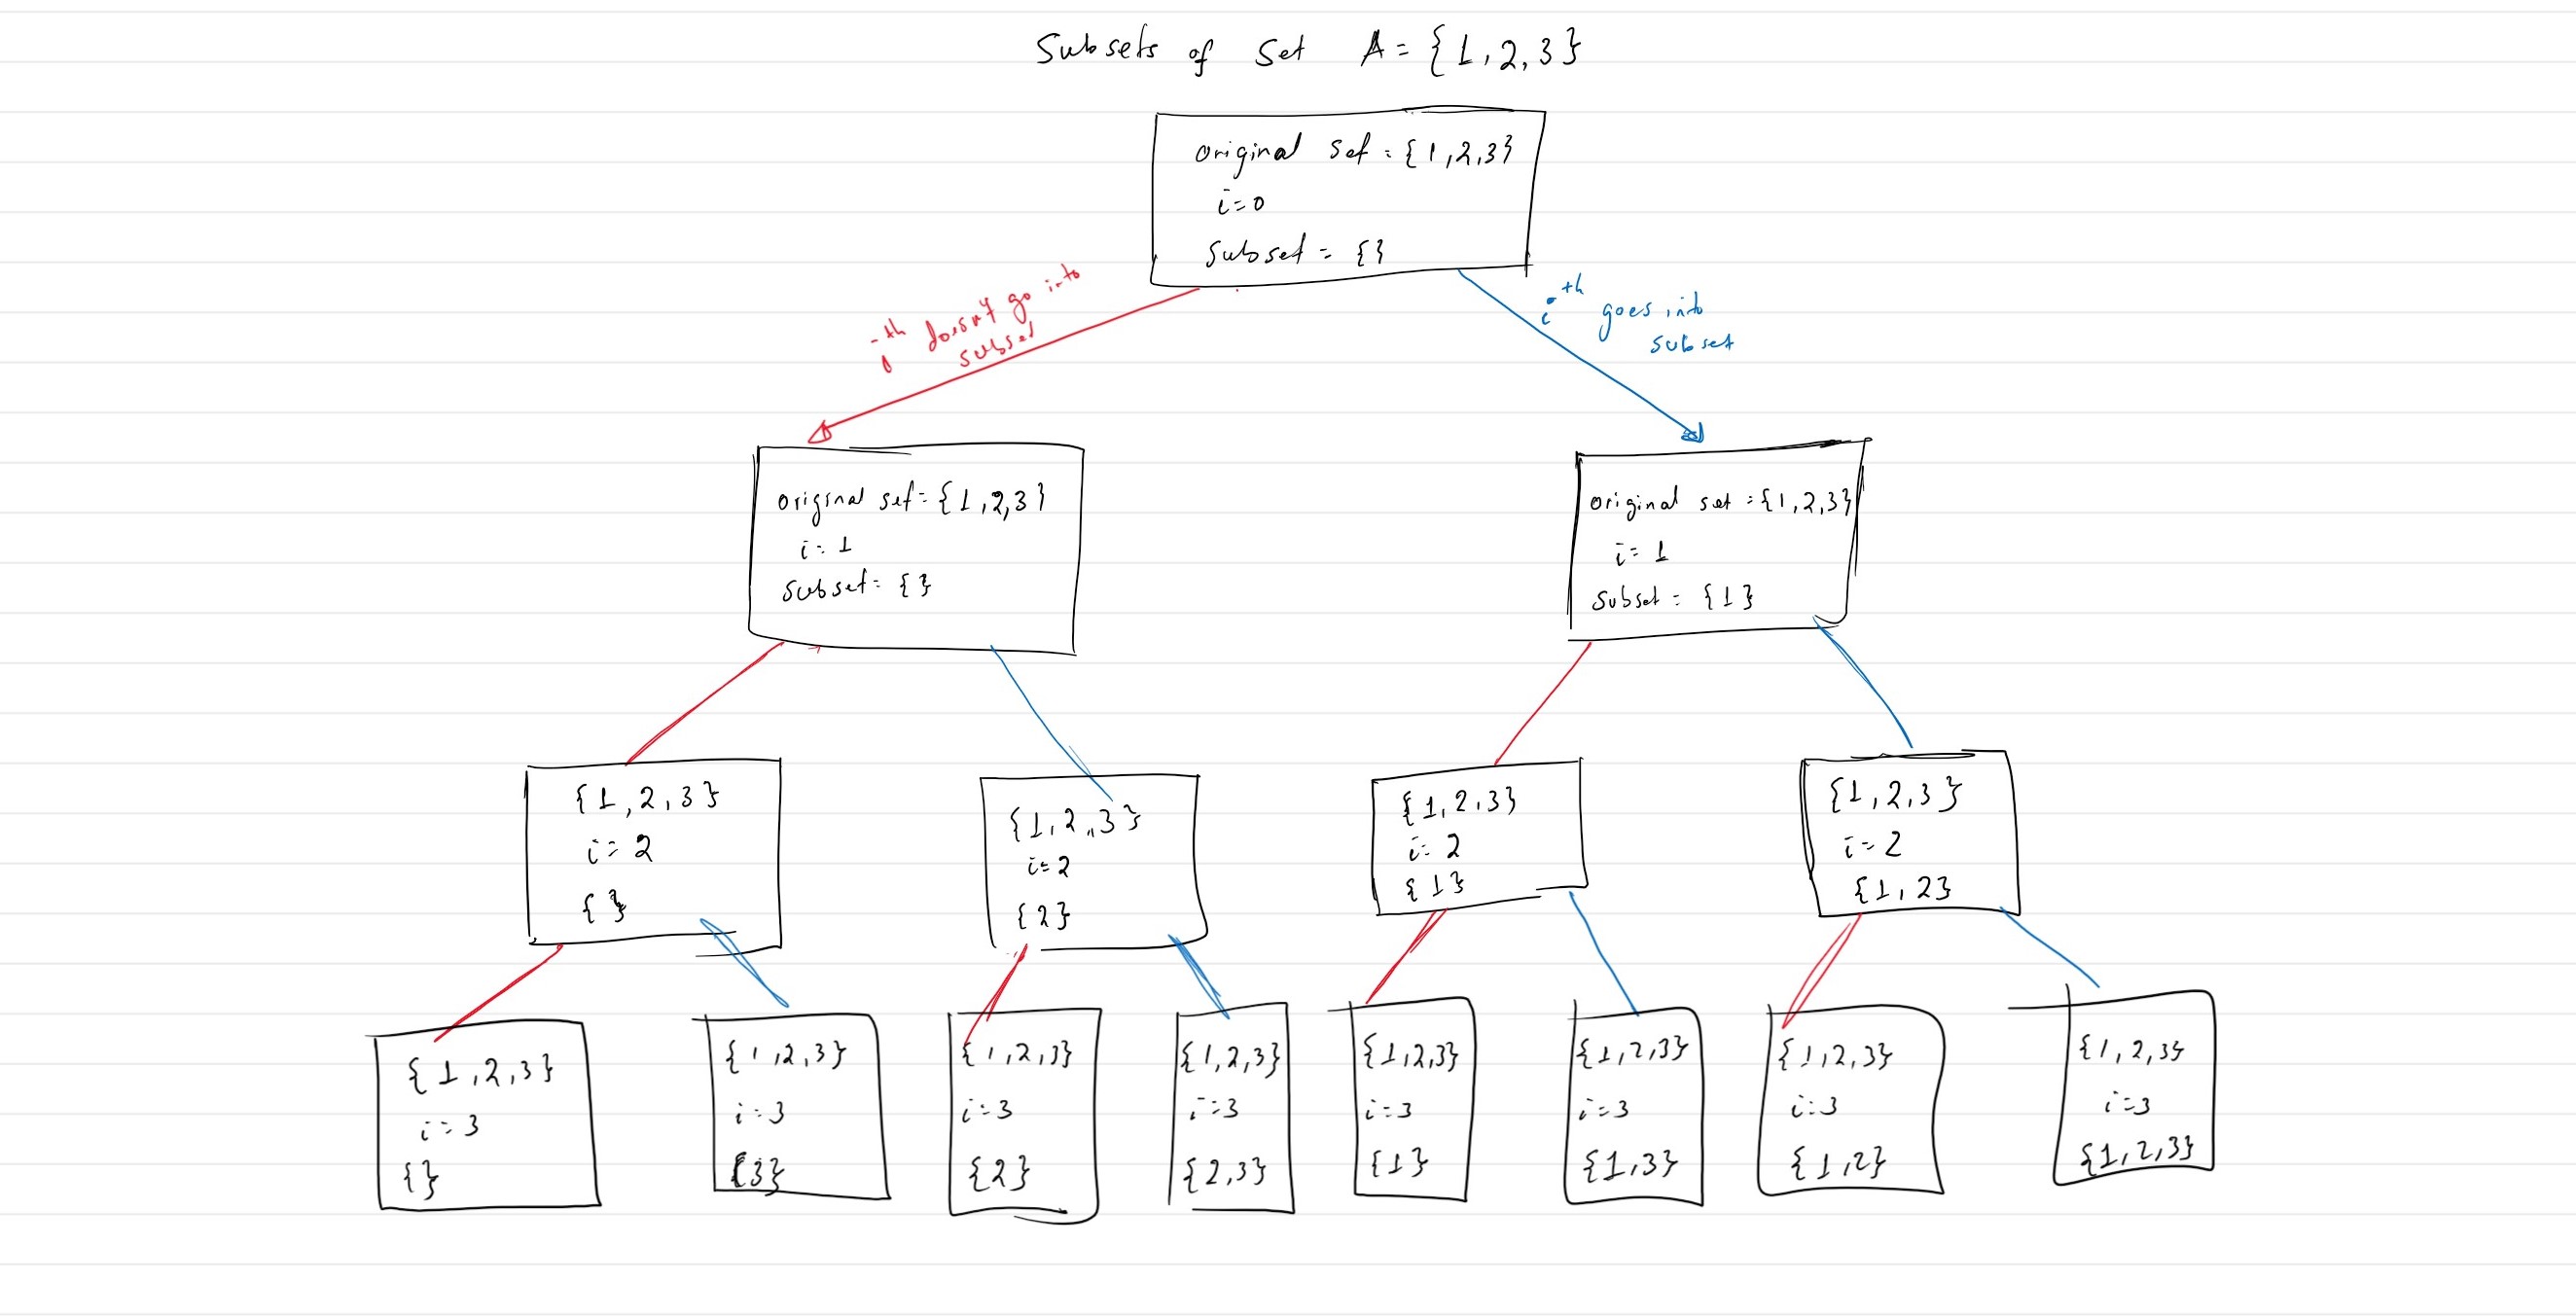 Subsets of Set A = {1,2,3}
original set = {1,2,3}
i=0
Subset = {}
ith doesn't go into
subset
ith goes into
subset
original set = {1,2,3}
i=1
subset = {}
original set = {1,2,3}
i=1
subset = {1}
{1,2,3}
i=2
{}
{1,2,3}
i=2
{2}
{1,2,3}
i=2
{1}
{1,2,3}
i=2
{1,2}
{1,2,3}
i=3
{}
{1,2,3}
i=3
{3}
{1,2,3}
i=3
{2}
{1,2,3}
i=3
{2,3}
{1,2,3}
i=3
{1}
{1,2,3}
i=3
{1,3}
{1,2,3}
i=3
{1,2}
{1,2,3}
i=3
{1,2,3}